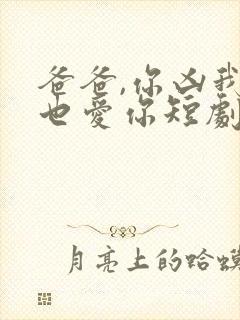 爸爸,你凶我
也愛你短劇
月亮上的蛤蟆